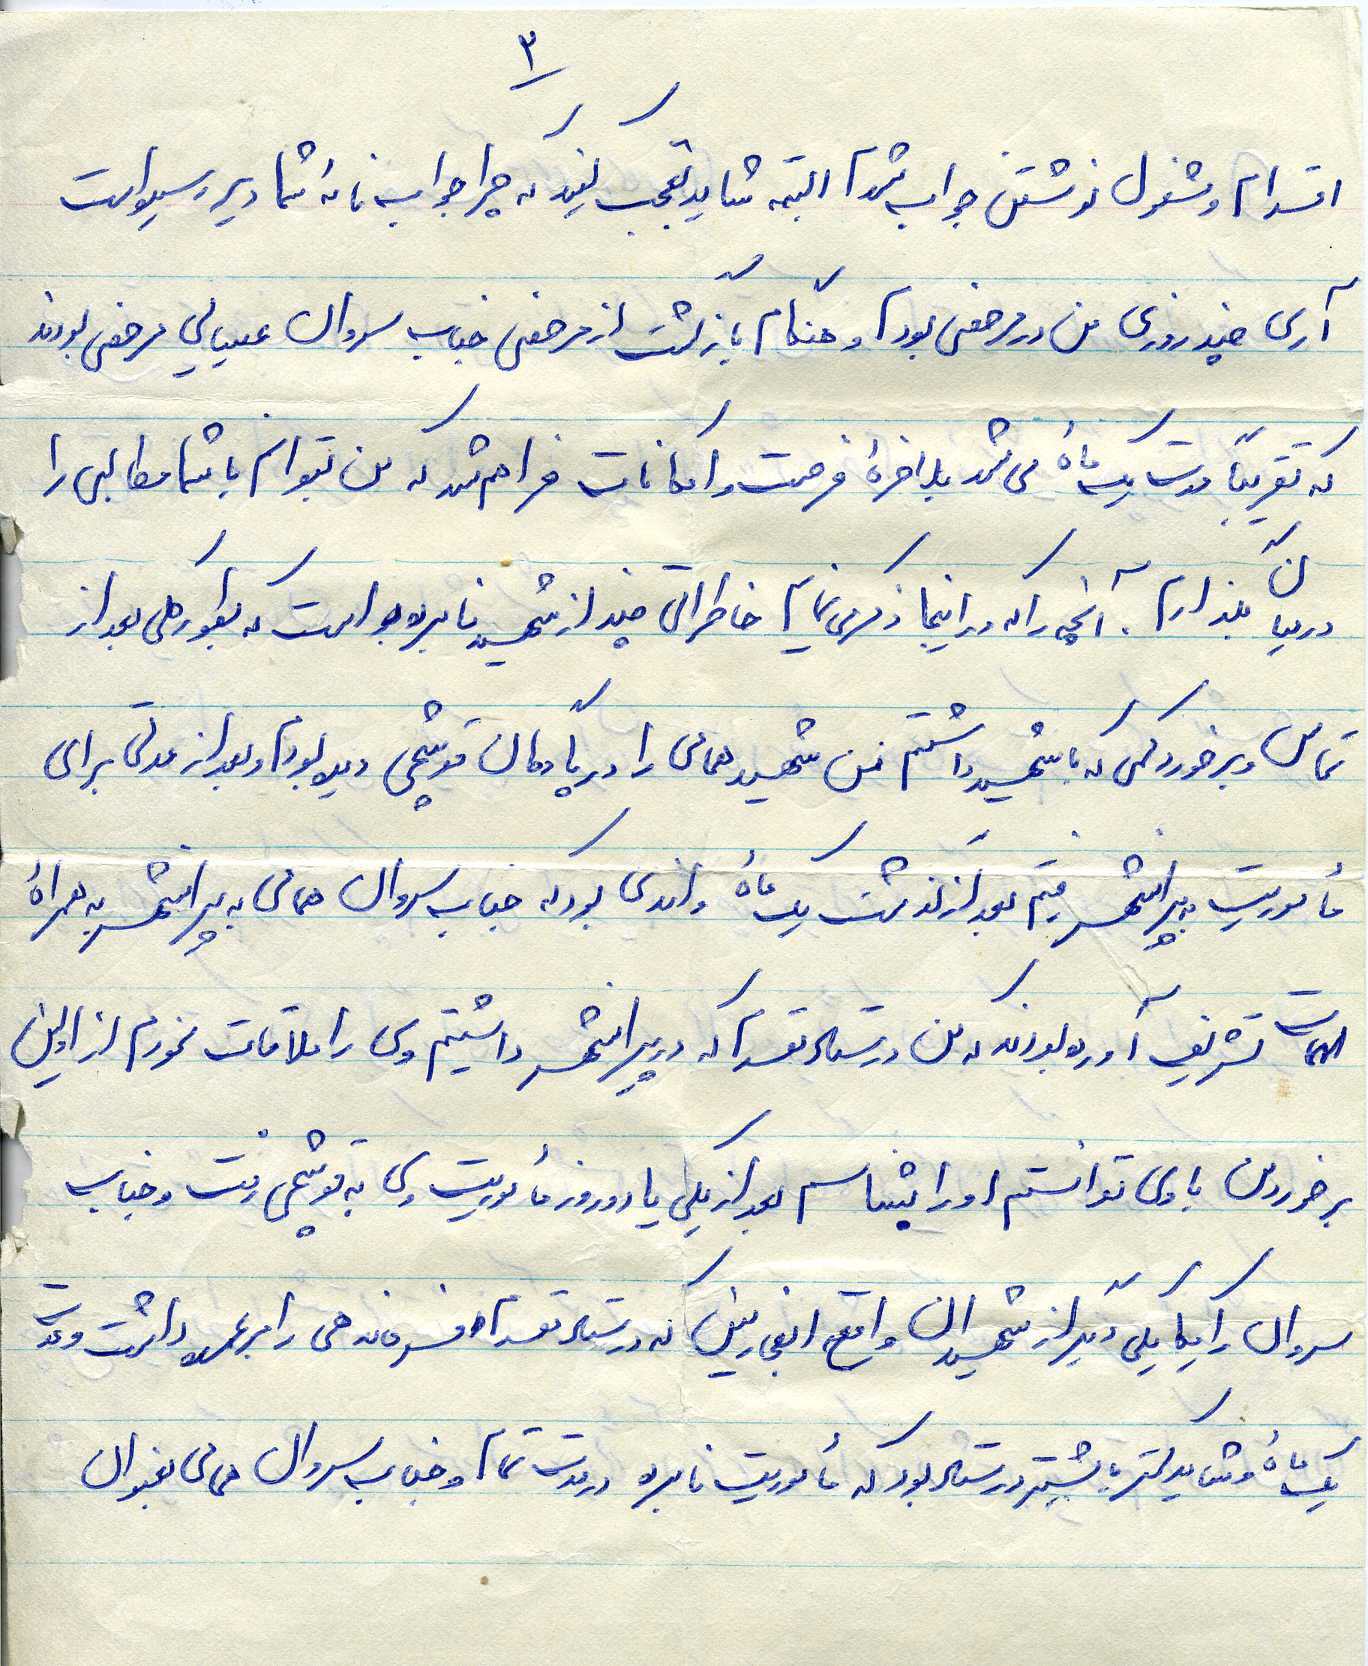 ۳
اقدام و مشغول نوشتن جواب شدم البته شاید تعجب کنید که چرا جواب نامهٔ شما دیر رسیده است
آری چند روزی من در مرخصی بودم و هنگام بازگشت از مرخصی جناب سروان عینالی مرخصی بودند
که تقریباً مدت یک ماهٔ می شد بلاخرهٔ فرصت و امکانات فراهم شد که من بتوانم با شما مطالبی را
در میان بگذارم . آنچه را که در اینجا ذکر می نمایم خاطراتی چند از شهید نامبرده است که بطور کلی بعد از
تماس و برخورد کمی که با شهید داشتم من شهید همامی را در پادگان قوشچی دیده بودم و بعد از مدتی برای
مأموریت به پیرانشهر رفتم بعد از گذشت یک ماهٔ و اندی بود که جناب سروان همامی به پیرانشهر به همراهٔ
تشریف آورده بودند که من در ستاد مقدم که در پیرانشهر داشتیم وی را ملاقات نمودم از اولین
برخورد من با وی توانستم او را بشناسم بعد از یکی یا دو روز مأموریت وی به قوشچی رفت و جناب
سروان یکی دیگر از شهیدان واقع که در ستاد مقدم فرماندهی را بر عهده داشت و مدت
یک ماهٔ و شاید کمتر یا بیشتر در ستاد بود که مأموریت نامبرده در مدت تمام و جناب سروان همامی بعنوان